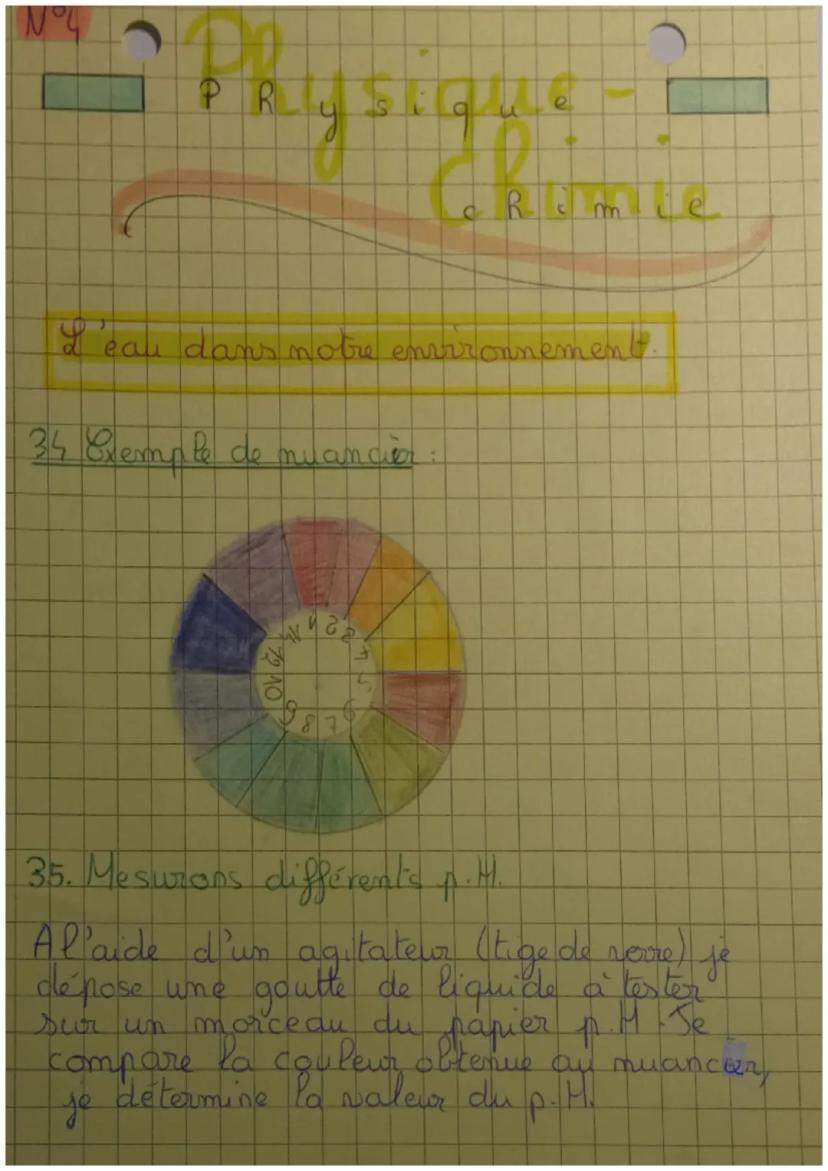 N°4
Physique -
Physique
Chimie
chimie
L'eau dans notre environnement.
34 Exemple de nuancier :
1 2 3 4 5 6 7 8 9 10 12 14
35. Mesurons différents p.H.
A l'aide d'un agitateur (tige de verre) je
dépose une goutte de liquide à tester
sur un morceau du papier p.H. Je
compare la couleur obtenue au nuancier,
je détermine la valeur du p.H.